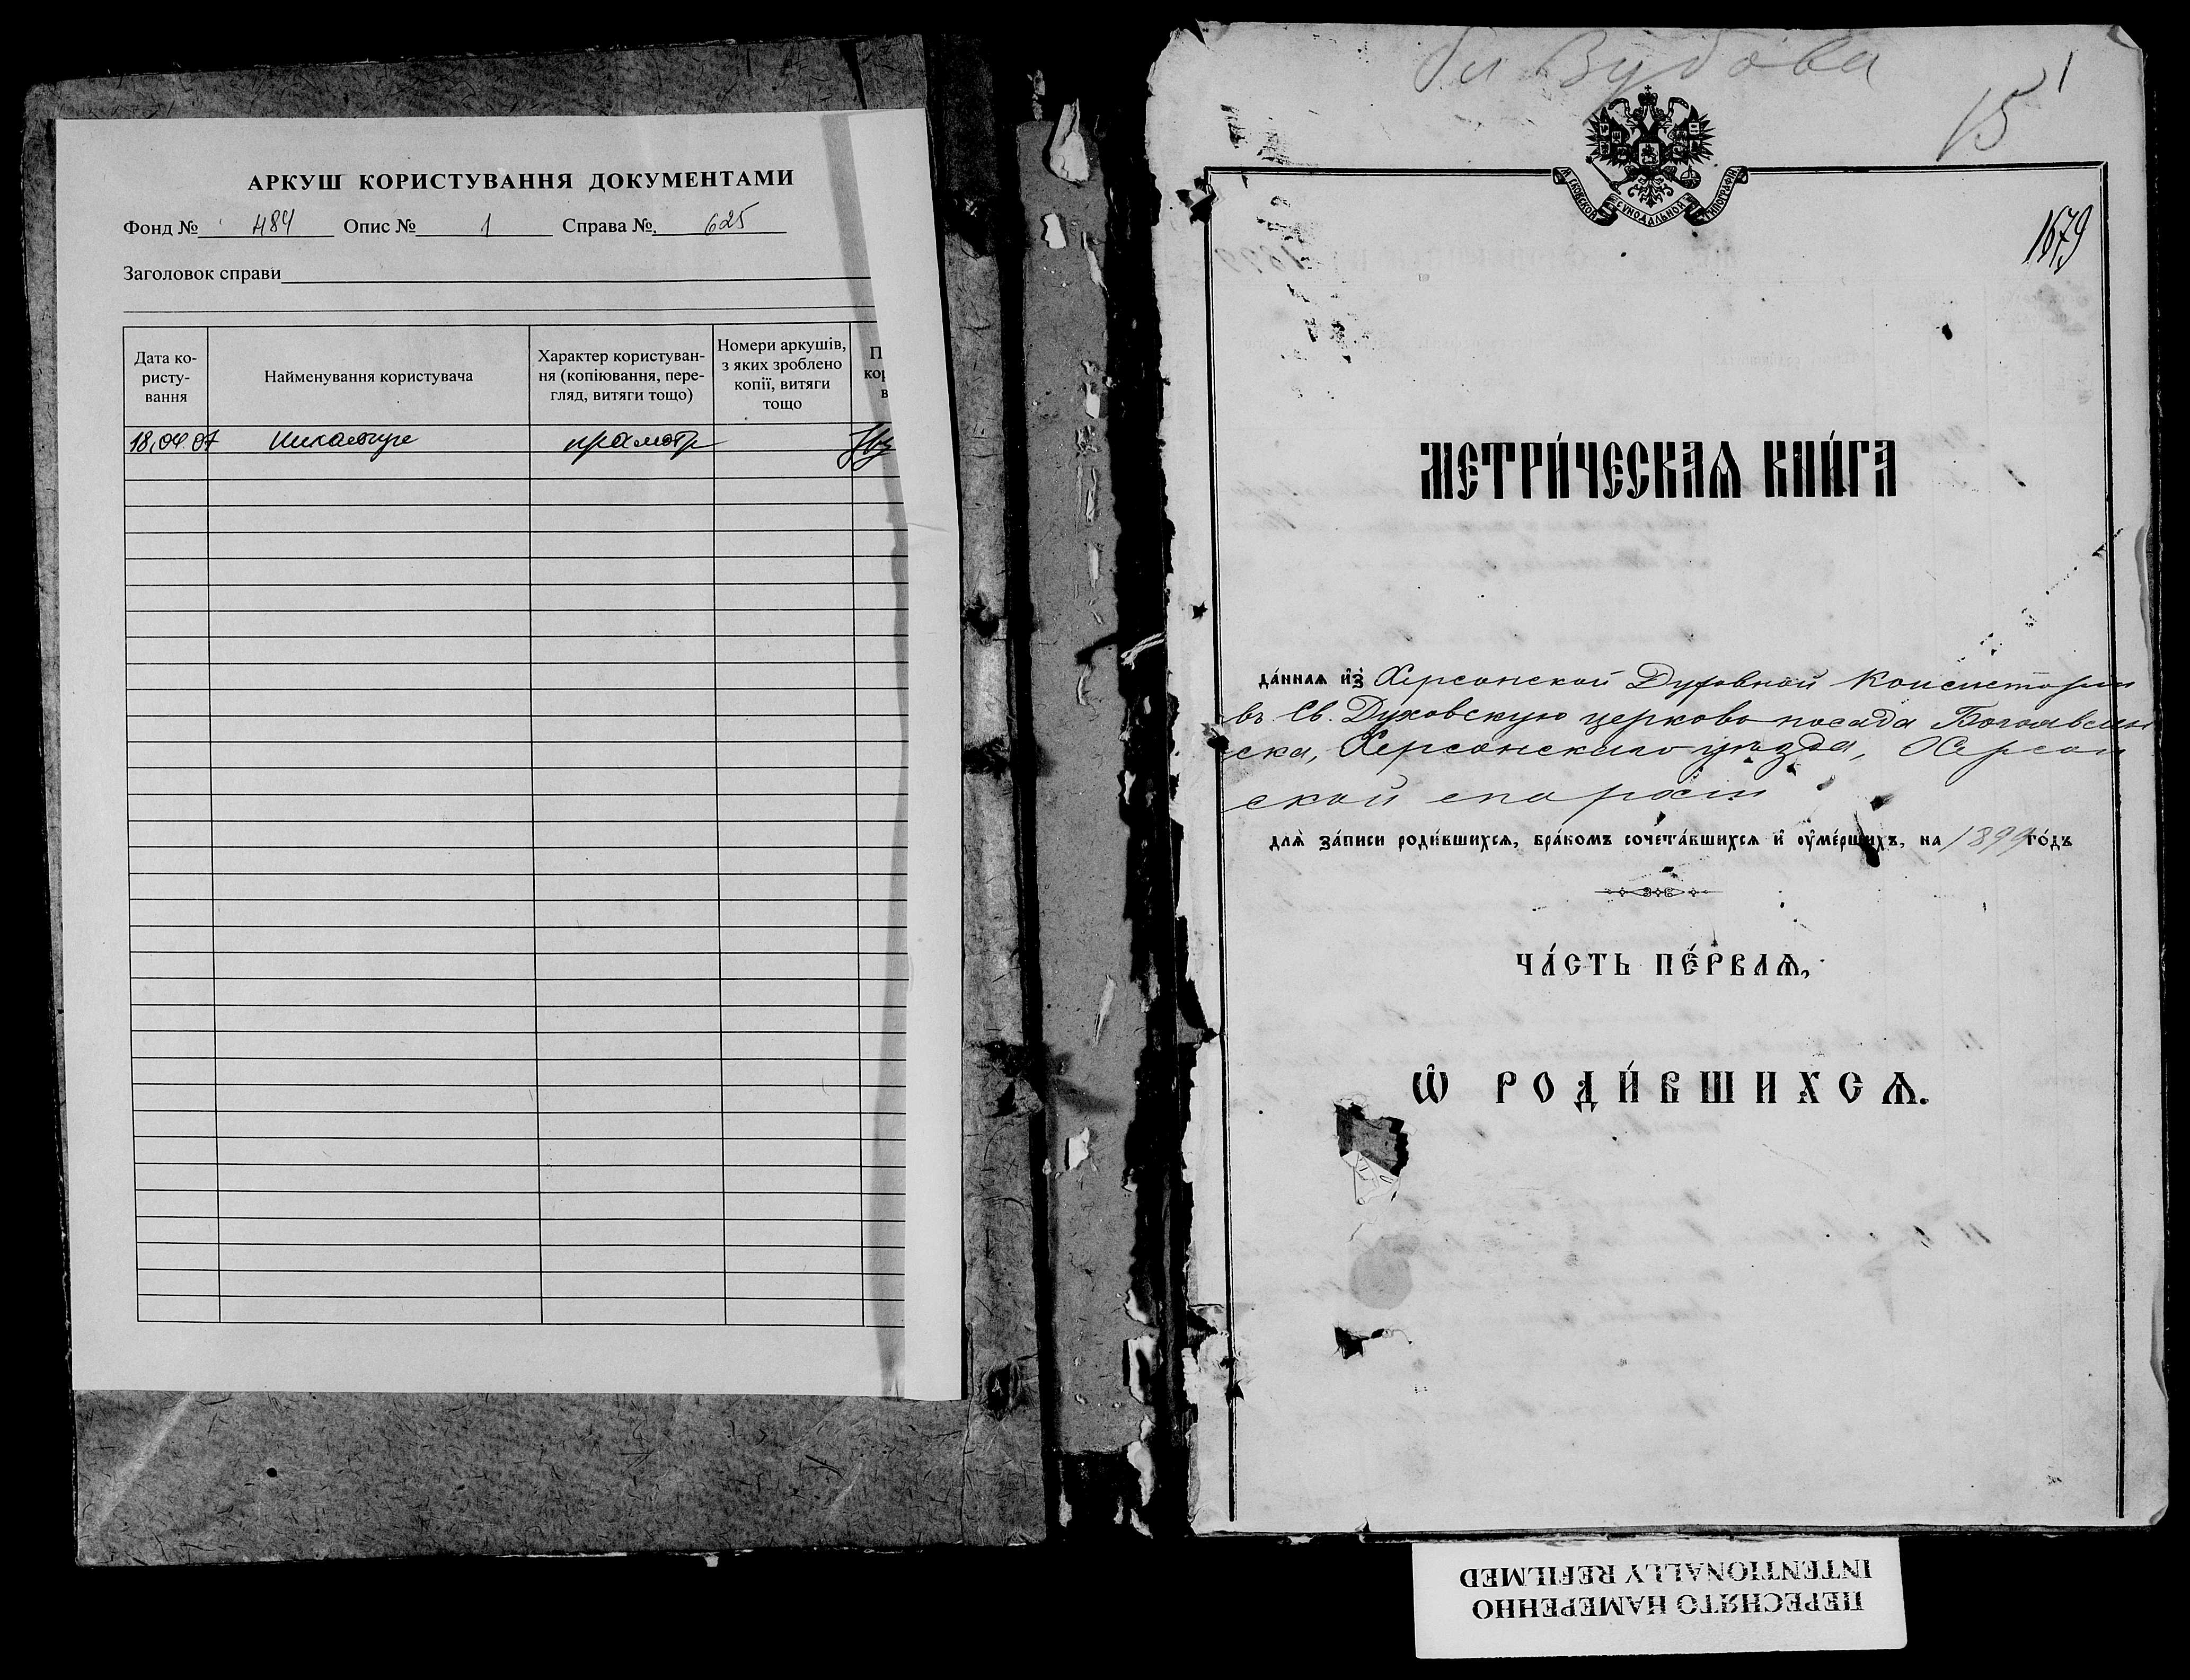 АРКУШ КОРИСТУВАННЯ ДОКУМЕНТАМИ
Фонд № 484 Опис № 1 Справа № 625
Заголовок справи
Дата ко-
ристу-
вання
Найменування користувача
Характер користуван-
ня (копіювання, пере-
гляд, витяги тощо)
Номери аркушів,
з яких зроблено
копії, витяги
тощо
18.04.07
1
15
1679
МЕТРИ́ЧЕСКАѦ КНИ́ГА
да́ннаѧ и҆з̾ Херсонской Духовной Консисторіи
въ Св. Духовскую церковь посада Богоявлен
ска, Херсонскаго уѣзда, Херсон
ской епархіи
длѧ̀ за́писи роди́вшихсѧ, бра́комъ сочета́вшихсѧ и҆ ѹ҆ме́ршихъ, на 1899 го́дъ
ЧА́СТЬ ПЕ́РВАѦ,
Ѡ҆ РОДИ́ВШИХСѦ.
ПЕРЕСНЯТО НАМЕРЕННО
INTENTIONALLY REFILMED